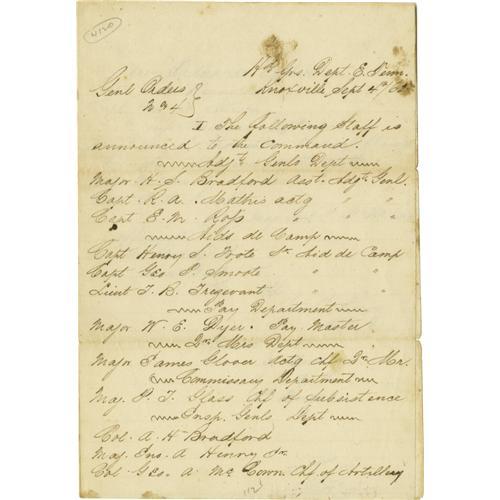 4120
Hd Qrs. Dept. E. Tenn.
Knoxville, Sept 4th/62
Genl Orders
234
I The following Staff is
announced to the command.
Adjt Genls Dept
Major H. S. Bradford Asst. Adjt. Genl.
Capt R. A. Mathis actg " "
Capt E. M. Ross " "
Aids de Camp
Capt Henry S. Foote Jr Aid de Camp
Capt Geo P. Smoote " "
Lieut T. B. Tregevant " "
Pay Department
Major W. E. Dyer. Pay Master
Qr. Mrs Dept
Major James Glover Actg Chf Qr. Mr.
Commissary Department
Maj. P. T. Glass Chf of Subsistence
Insp. Genls Dept
Col. A. H Bradford
Maj. Jno. A Henry Jr.
Col Geo. A. Mc Cown. Chf. of Artillery